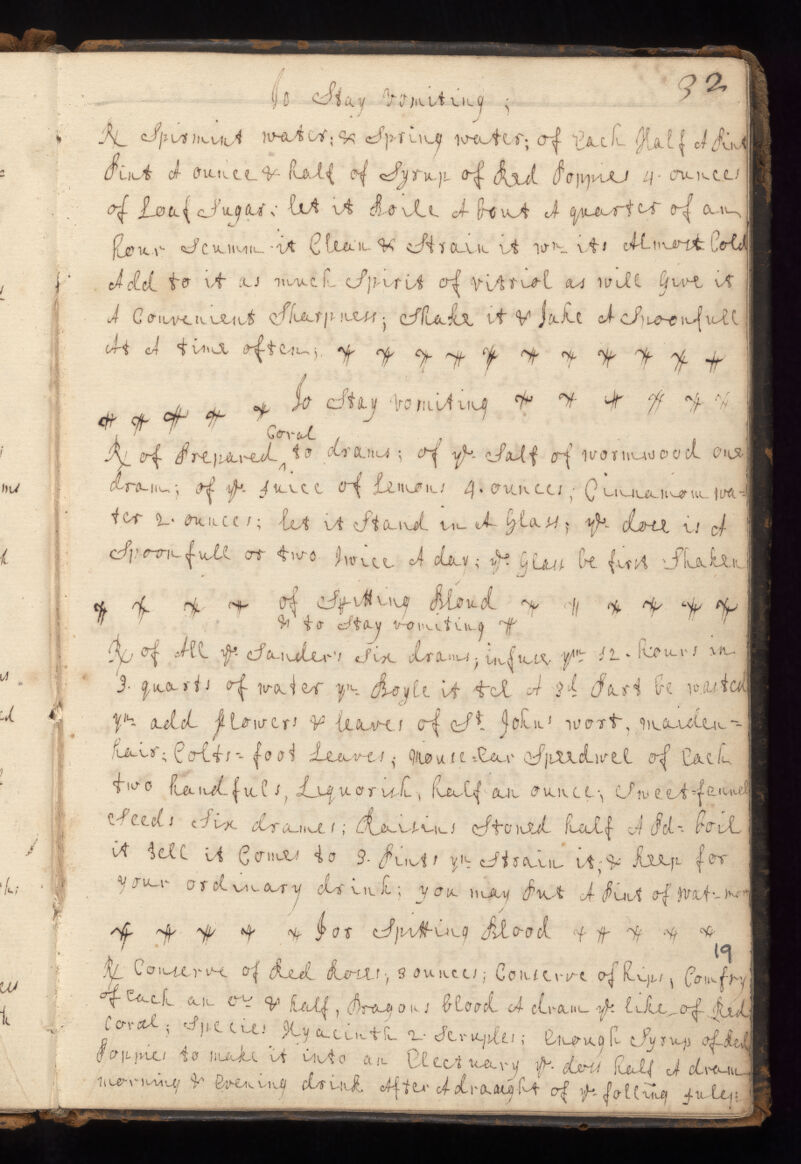 32
To Stay vomiting;
℞ Spirmint water; & Spring water; of Each Half A Pint
Pint A ounce & half of Syrup of Red Poppies 4 ounces
of Loaf Sugar; let it Boile A bout A quarter of an
hour Scumm it Clean & Strain it wn its Almost Cold
Add to it as much Spirit of vitriol as will Give it
A Convenient Sharpness; Shake it & Take A Spoonfull
At A time often;
To Stay vomiting
℞ of Prepared Coral to drams; of ye Salt of wormwood one
dram; of ye Juice of Lemons 4 ounces; Cinnamom wa=
ter 2 ounces; let it Stand in A Glass; ye dose is A
Spoonfull or two twice A day; ye Glass be first Shaken
of Spitting Bloud
& to Stay vomiting
℞ of All ye Sanders Six drams; infuse ym 12 hours in
3 quarts of water yn Boyle it tel A 3d Part be wasted
yn add flowers & leaves of St Johns wort, maiden=
hair; Colts=foot Leaves; mouse=Ear Speedwel of Each
two handfuls, Liquorish, half an ounce; Sweet=fennel
Seeds Six drames; Raisins Stoned half A Pd= boil
it tell it Comes to 3 Pints yn Strain it, & keep for
your ordinary drink; you may Put A Pint of wat= mor
For Spitting Blood
19
℞ Conserve of Red Roses, 3 ounces; Conserve of hips, Comfry
of Each an oz & half, Dragons blood A dram ye like of Red
Coral; Species Hyacinth 2 Scruples; Enough Syrup of Red
Poppies to make it into an Electuary ye doss half A dram
morning & Evening drink After A draught of ye folling Julep: